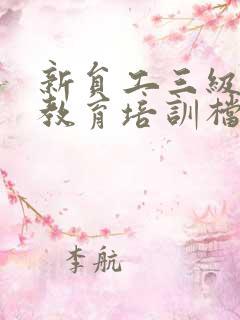 新員工三級
教育培訓檔
李航